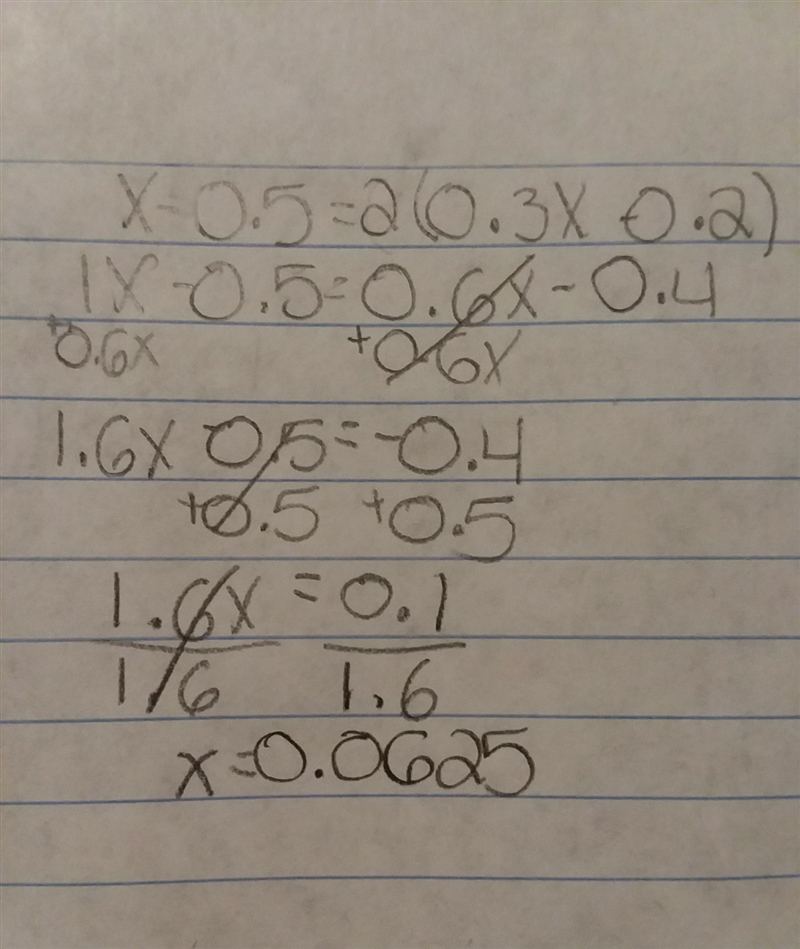 x-0.5=2(0.3x-0.2)
1x-0.5=0.6x-0.4
+0.6x +0.6x
1.6x-0.5=-0.4
+0.5 +0.5
1.6x = 0.1
1.6 1.6
x=0.0625